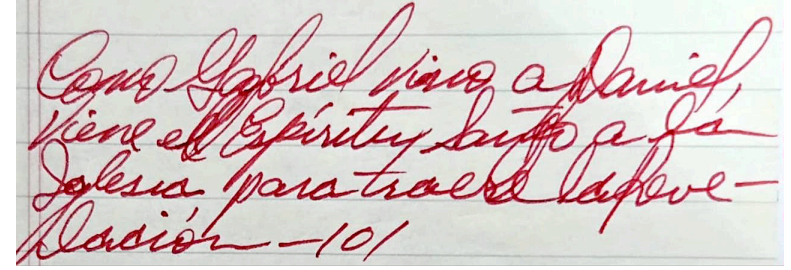 Como Gabriel vino a Daniel,
viene el Espíritu Santo a la
Iglesia para traerle la Reve-
lación -101